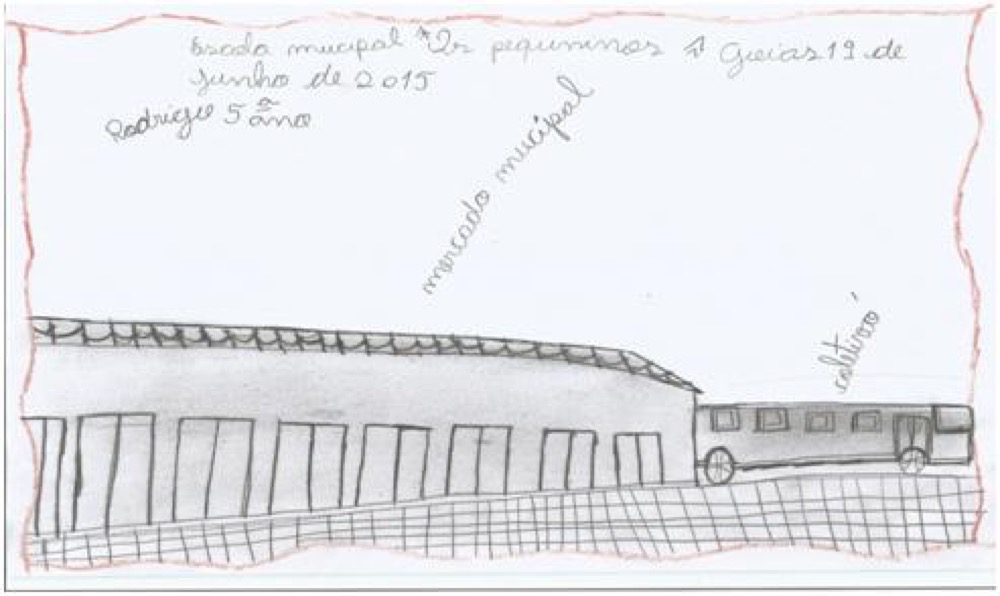 Escoda mucipal "Os pequeninos" Goias 19 de
Junho de 2015
Rodrigo 5º ano
mercado mucipal